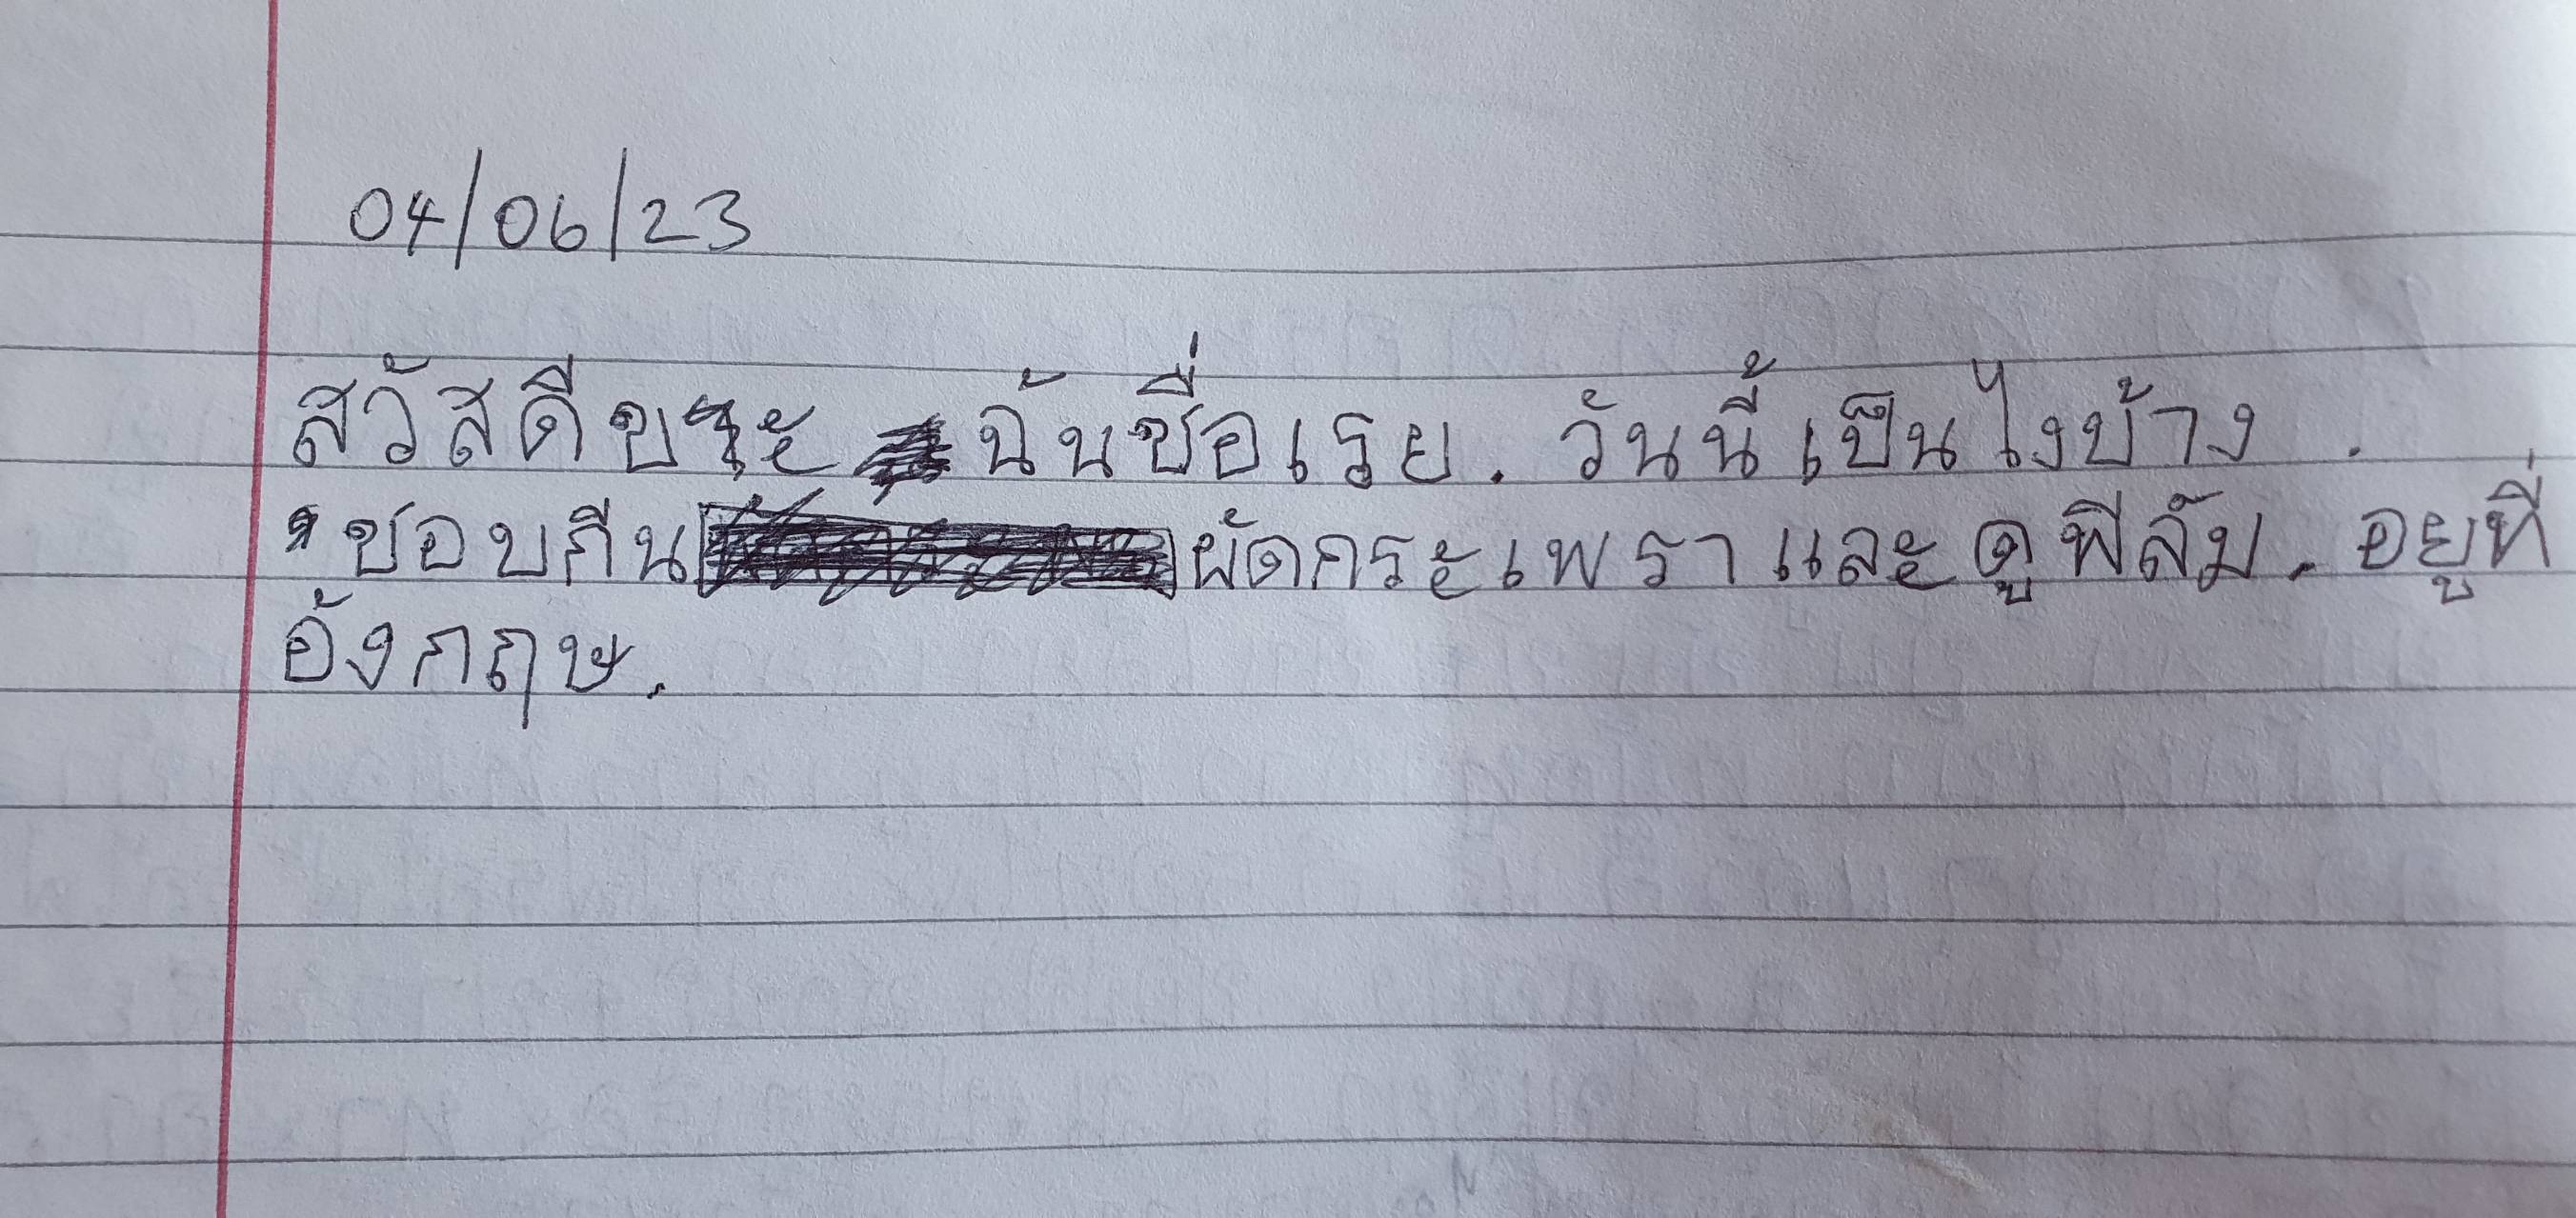 04/06/23
สวัสดีขาะ ฉันชื่อเรย. วันนี้เป็นไงบ้าง.
ชอบกีนผัดกระเพราและดูฟีล์ม. อยูที่
อังกฤษ.